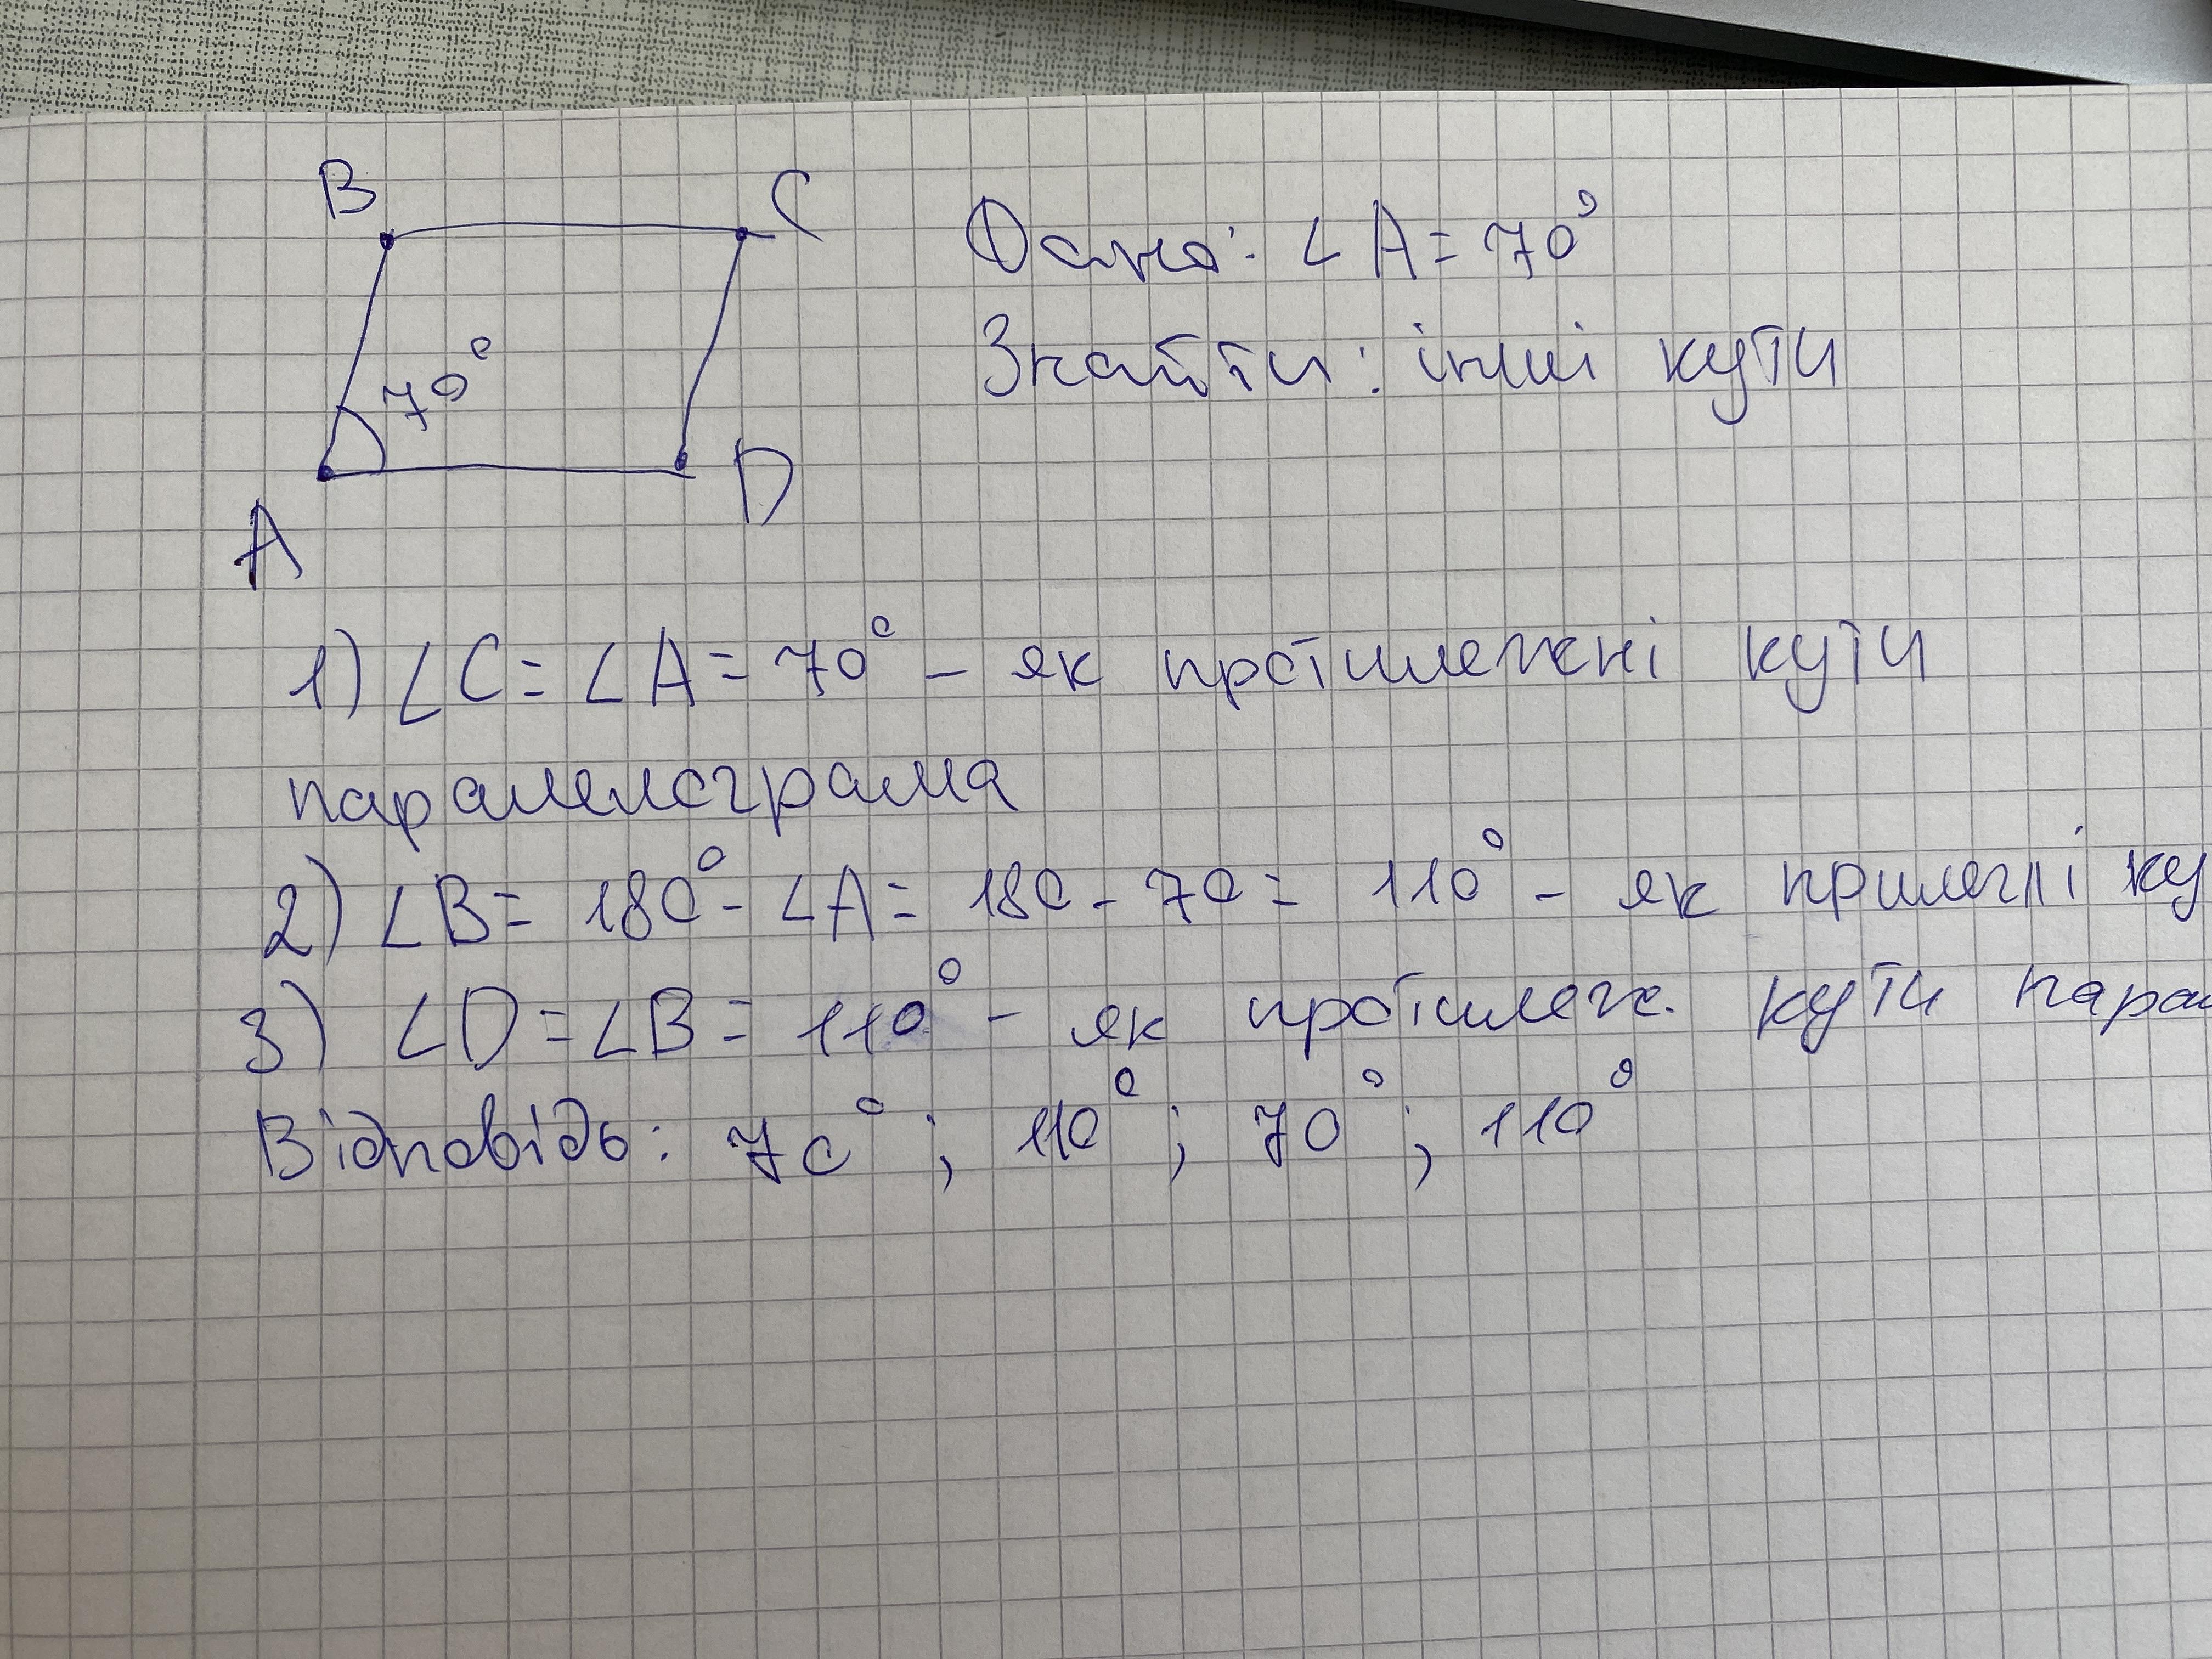 B
C
70°
A
D
Дано: ∠A = 70°
Знайти: інші кути
1) ∠C = ∠A = 70° - як протилежні кути
паралелограма
2) ∠B = 180° - ∠A = 180 - 70 = 110° - як прилеглі ку
3) ∠D = ∠B = 110° - як протилеж. кути пара
Відповідь: 70°; 110°; 70°; 110°